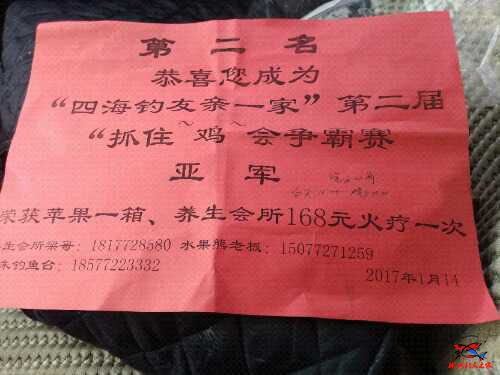 第二名
恭喜您成为
“四海钓友亲一家”第二届
“抓住~鸡~会争霸赛
亚军
荣获苹果一箱、养生会所168元火疗一次
生会所梁哥：1817728580 水果熊老板：15077271259
钓鱼台：18577223332
2017年1月14